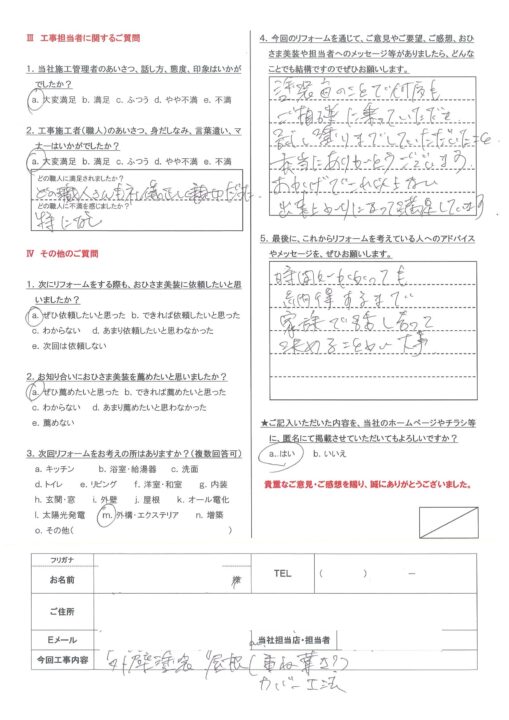 Ⅲ 工事担当者に関するご質問
1. 当社施工管理者のあいさつ、話し方、態度、印象はいかが
でしたか？
a. 大変満足 b. 満足 c. ふつう d. やや不満 e. 不満
2. 工事施工者（職人）のあいさつ、身だしなみ、言葉遣い、マ
ナーはいかがでしたか？
a. 大変満足 b. 満足 c. ふつう d. やや不満 e. 不満
どの職人に満足されましたか？
どの職人さんも礼儀正しく親切だった
どの職人に不満を感じましたか？
特になし
Ⅳ その他のご質問
1. 次にリフォームをする際も、おひさま美装に依頼したいと思
いましたか？
a. ぜひ依頼したいと思った b. できれば依頼したいと思った
c. わからない d. あまり依頼したいと思わなかった
e. 次回は依頼しない
2. お知り合いにおひさま美装を薦めたいと思いましたか？
a. ぜひ薦めたいと思った b. できれば薦めたいと思った
c. わからない d. あまり薦めたいと思わなかった
e. 薦めない
3. 次回リフォームをお考えの所はありますか？（複数回答可）
a. キッチン b. 浴室・給湯器 c. 洗面
d.トイレ e. リビング f. 洋室・和室 g. 内装
h. 玄関・窓 i. 外壁 j. 屋根 k. オール電化
l. 太陽光発電 m. 外構・エクステリア n. 増築
o. その他( )
4. 今回のリフォームを通じて、ご意見やご要望、ご感想、おひ
さま美装や担当者へのメッセージ等がありましたら、どんな
ことでも結構ですのでぜひお願いします。
塗装面のことで何度も
ご相談に乗っていただき
試し塗りまでしていただいたこと
本当にありがとうございます
おかげでこれ以上ない
出来上がりになって満足しています
5. 最後に、これからリフォームを考えている人へのアドバイス
やメッセージを、ぜひお願いします。
時間がかかっても
納得するまで
家族で話し合って
決めることが大事
★ご記入いただいた内容を、当社のホームページやチラシ等
に、匿名にて掲載させていただいてもよろしいですか？
a. はい b. いいえ
貴重なご意見・ご感想を賜り、誠にありがとうございました。
フリガナ
お名前 様 TEL ( ) －
ご住所
Eメール 当社担当店・担当者
今回工事内容 外壁塗装 屋根(重ね葺き?)
カバー工法